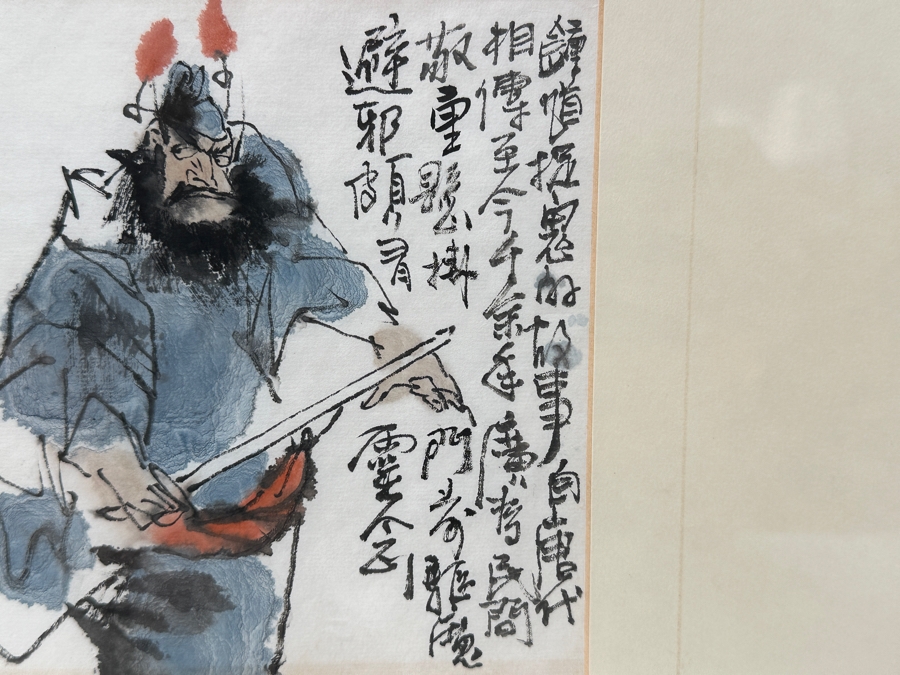 鍾馗捉鬼的故事自唐代
相傳至今千余年廣為民間
敬重懸掛門前驅鬼
避邪頗有靈